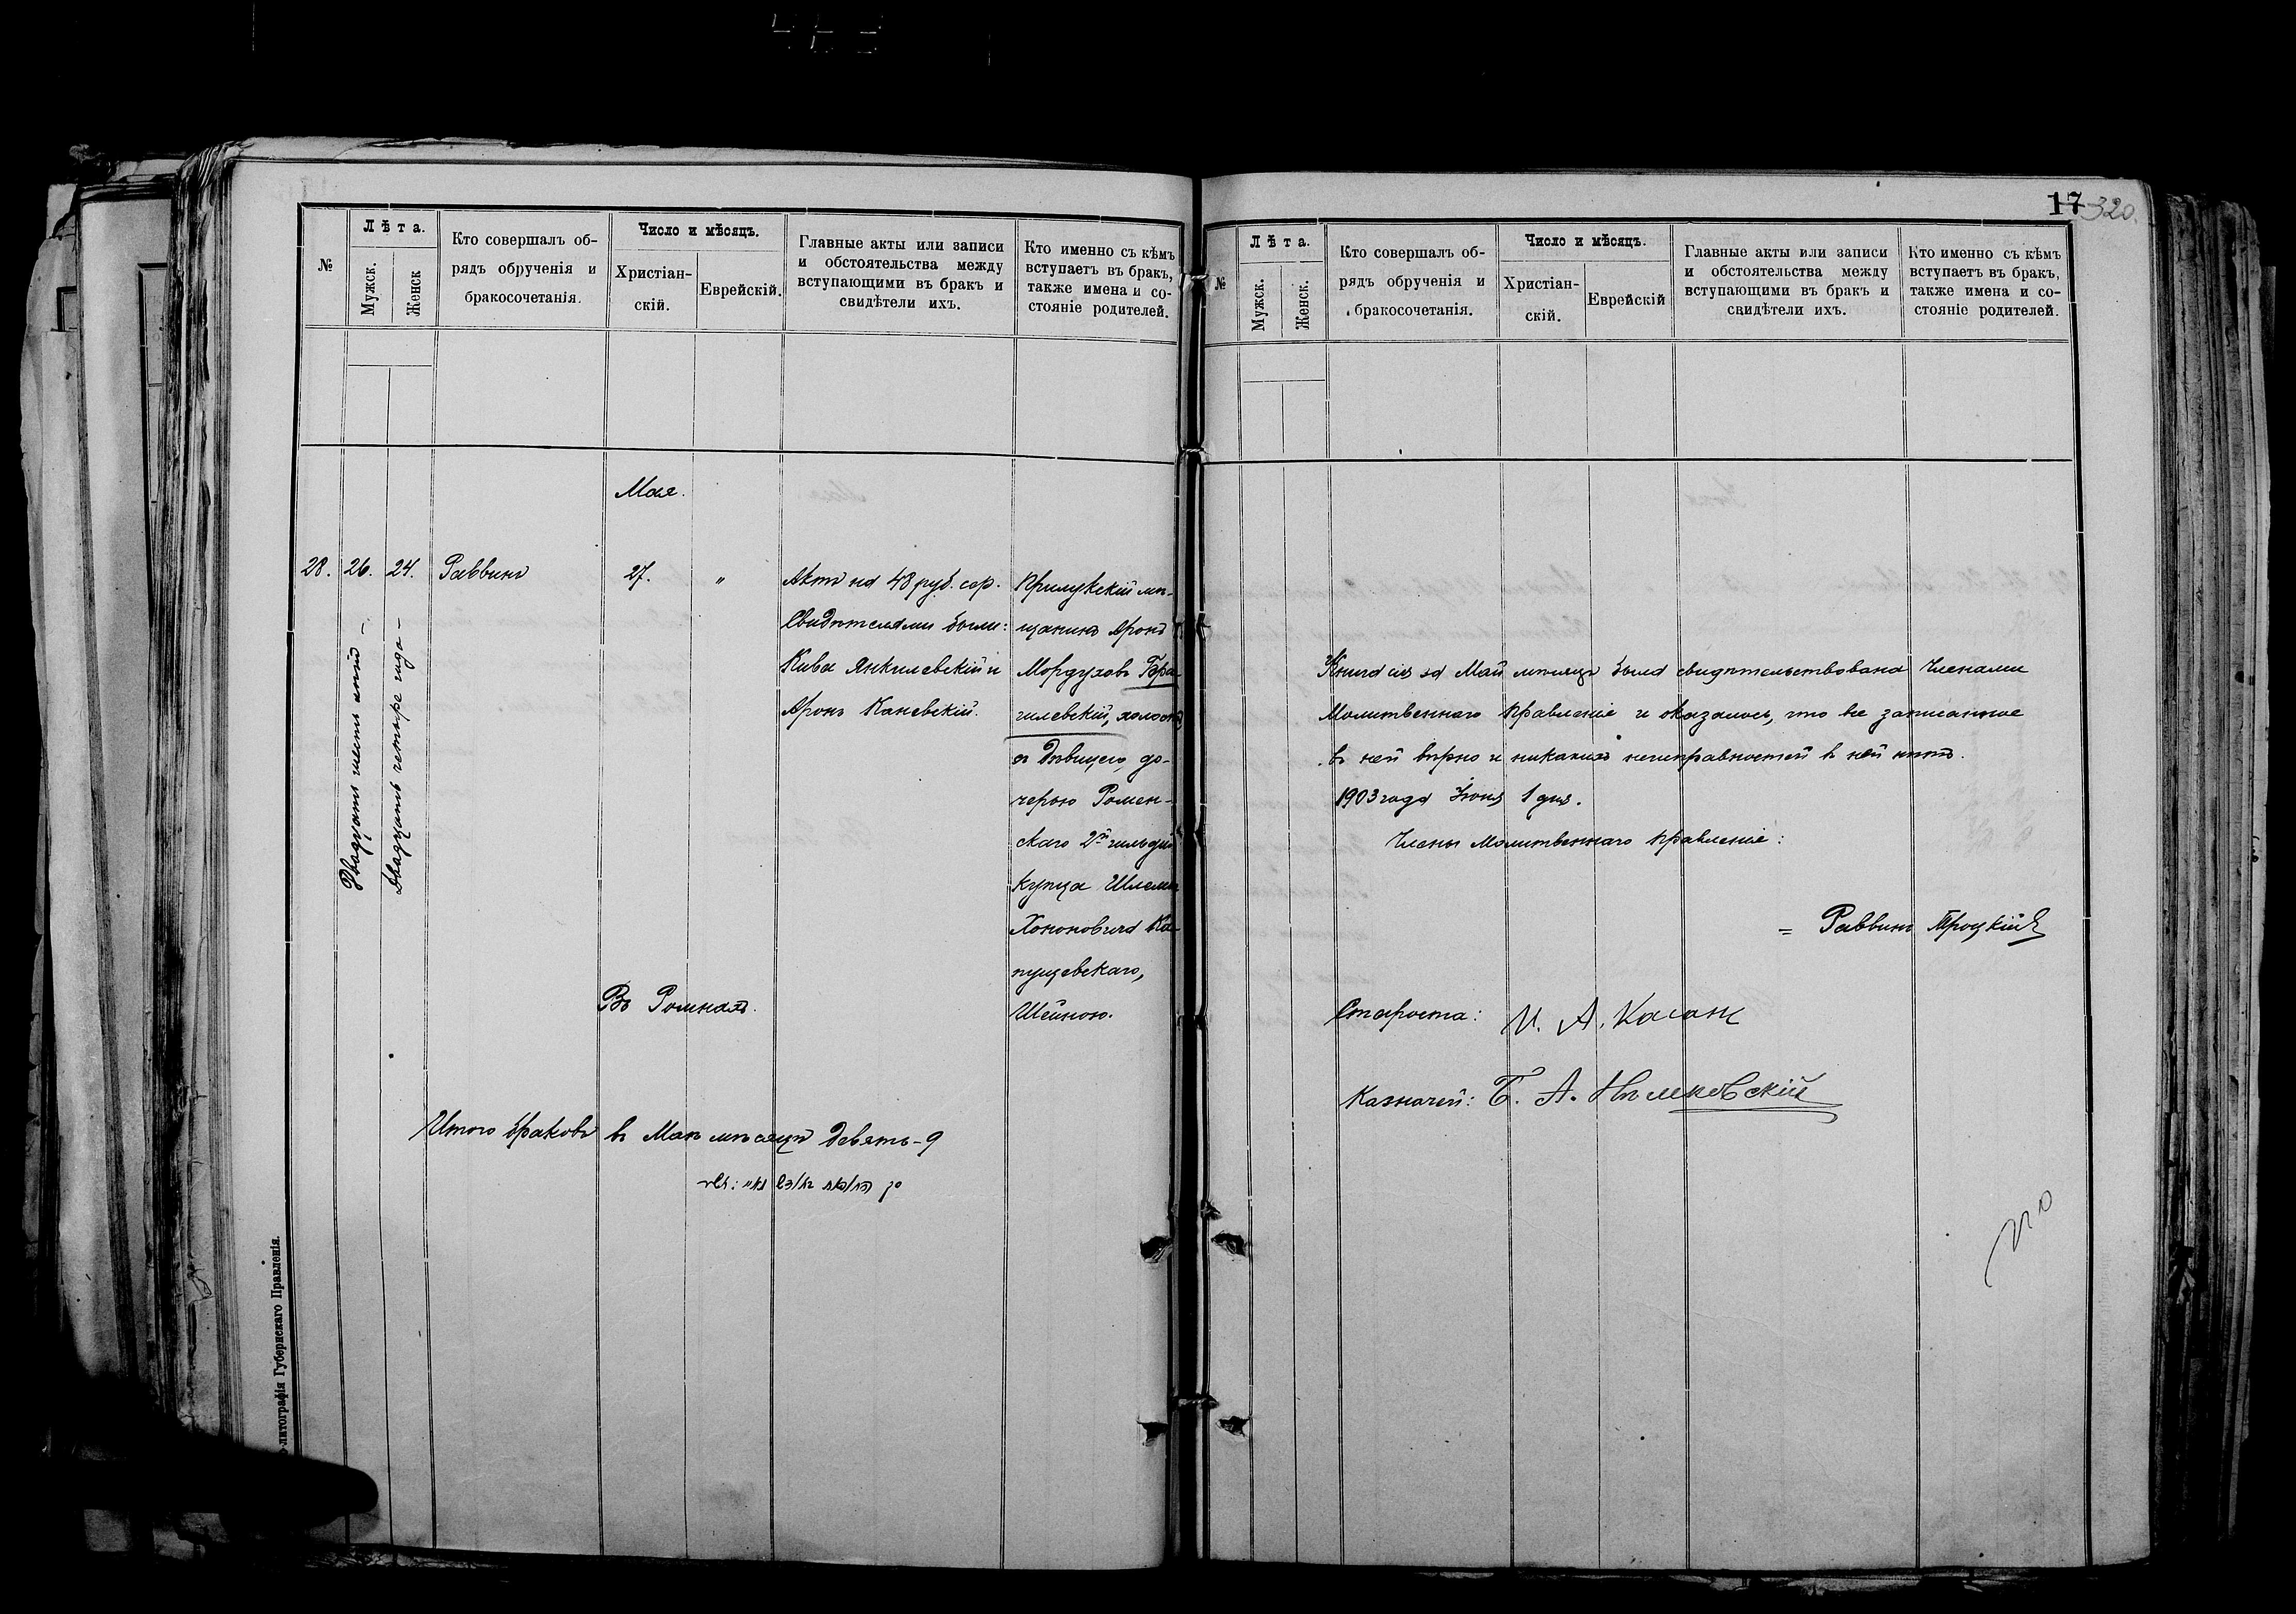 №
Лѣта.
Мужск.
Женск
Кто совершалъ об-
рядъ обрученія и
бракосочетанія.
Число и мѣсяцъ.
Христіан-
скій.
Еврейскій.
Главные акты или записи
и обстоятельства между
вступающими въ бракъ и
свидѣтели ихъ.
Кто именно съ кѣмъ
вступаетъ въ бракъ,
также имена и со-
стояніе родителей.
Мая.
28.
26.
Двадцать шесть лѣтъ –
24.
Двадцать четыре года –
Раввинъ
27.
"
Въ Ромнахъ.
Актъ на 48 руб. сер.
Свидѣтелями были:
Кива Янкилевскій и
Аронъ Каневскій.
Прилукскій мѣ-
щанинъ Аронъ
Мордуховъ Бра-
гилевскій, холостъ
съ дѣвицею, до-
черью Ромен-
скаго 2й гильдіи
купца Шлемы
Хононовича Ка-
пущевскаго,
Шейною.
Итого браковъ въ Маѣ мѣсяцѣ девять – 9
о-литографія Губернскаго Правленія.
17 320.
№
Лѣта.
Мужск.
Женск.
Кто совершалъ об-
рядъ обрученія и
бракосочетанія.
Число и мѣсяцъ.
Христіан-
скій.
Еврейскій
Главные акты или записи
и обстоятельства между
вступающими въ бракъ и
свидѣтели ихъ.
Кто именно съ кѣмъ
вступаетъ въ бракъ,
также имена и со-
стояніе родителей.
Книга сія за Май мѣсяцъ была свидѣтельствована Членами
Молитвеннаго Правленія и оказалось, что все записанное
въ ней вѣрно и никакихъ неисправностей въ ней нѣтъ.
1903 года Іюня 1 дня.
Члены Молитвеннаго Правленія:
= Раввинъ Троцкій
Староста: И. А. Каганъ
Казначей: Б. А. Нѣмковскій